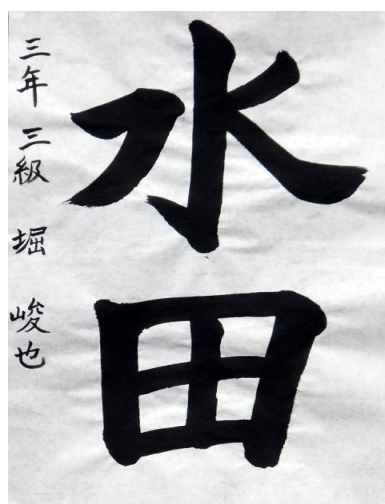 水田
三年 三級 堀 峻也